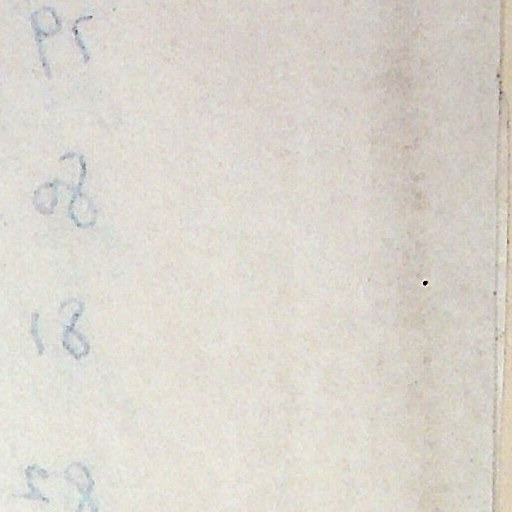 79
80
81
82